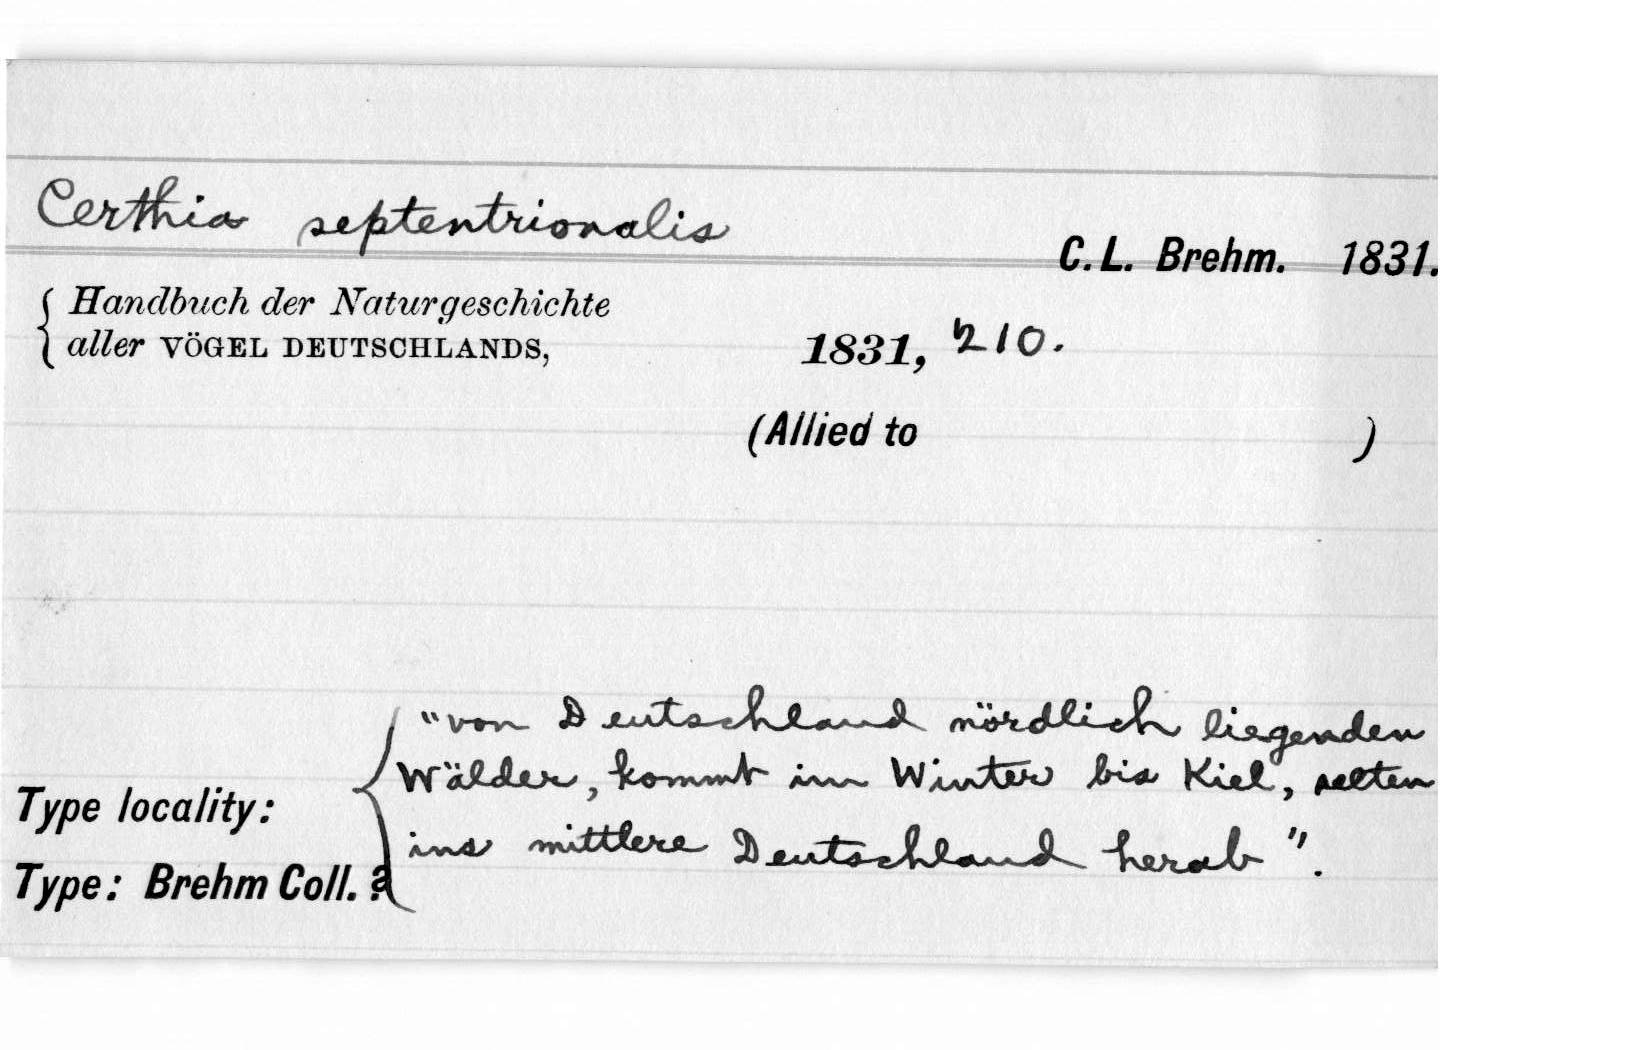 Certhia septentrionalis
C. L. Brehm. 1831.
Handbuch der Naturgeschichte
aller VÖGEL DEUTSCHLANDS,
1831, 210.
(Allied to )
"von Deutschland nördlich liegenden
Wälder, kommt im Winter bis Kiel, selten
ins mittlere Deutschland herab".
Type locality:
Type: Brehm Coll. ?